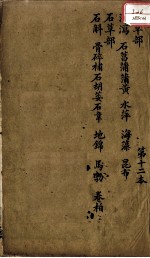 第十二本
草部
瀉 石菖蒲 蒲黃 水萍 海藻 昆布
石草部
石斛 骨碎補 石胡荽 石韋 地錦 馬勃 卷柏